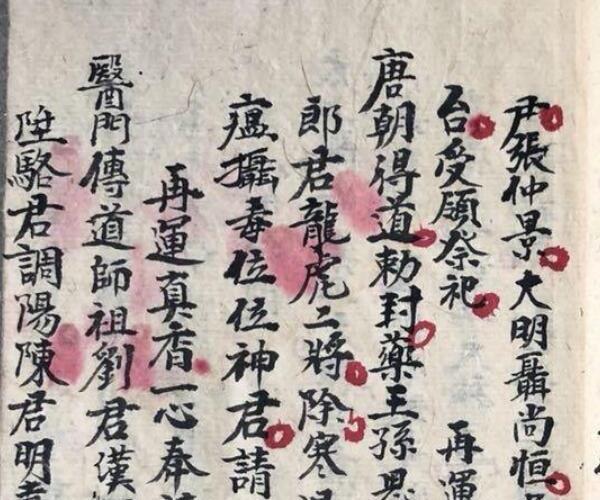 尹張仲景大明聶尚恒
台受願祭祀　再運
唐朝得道勅封藥王孫思
郎君龍虎二將除寒
瘟攝毒位位神君請
再運真香一心奉
醫門傳道師祖劉君漢
陞駱君調陽陳君明